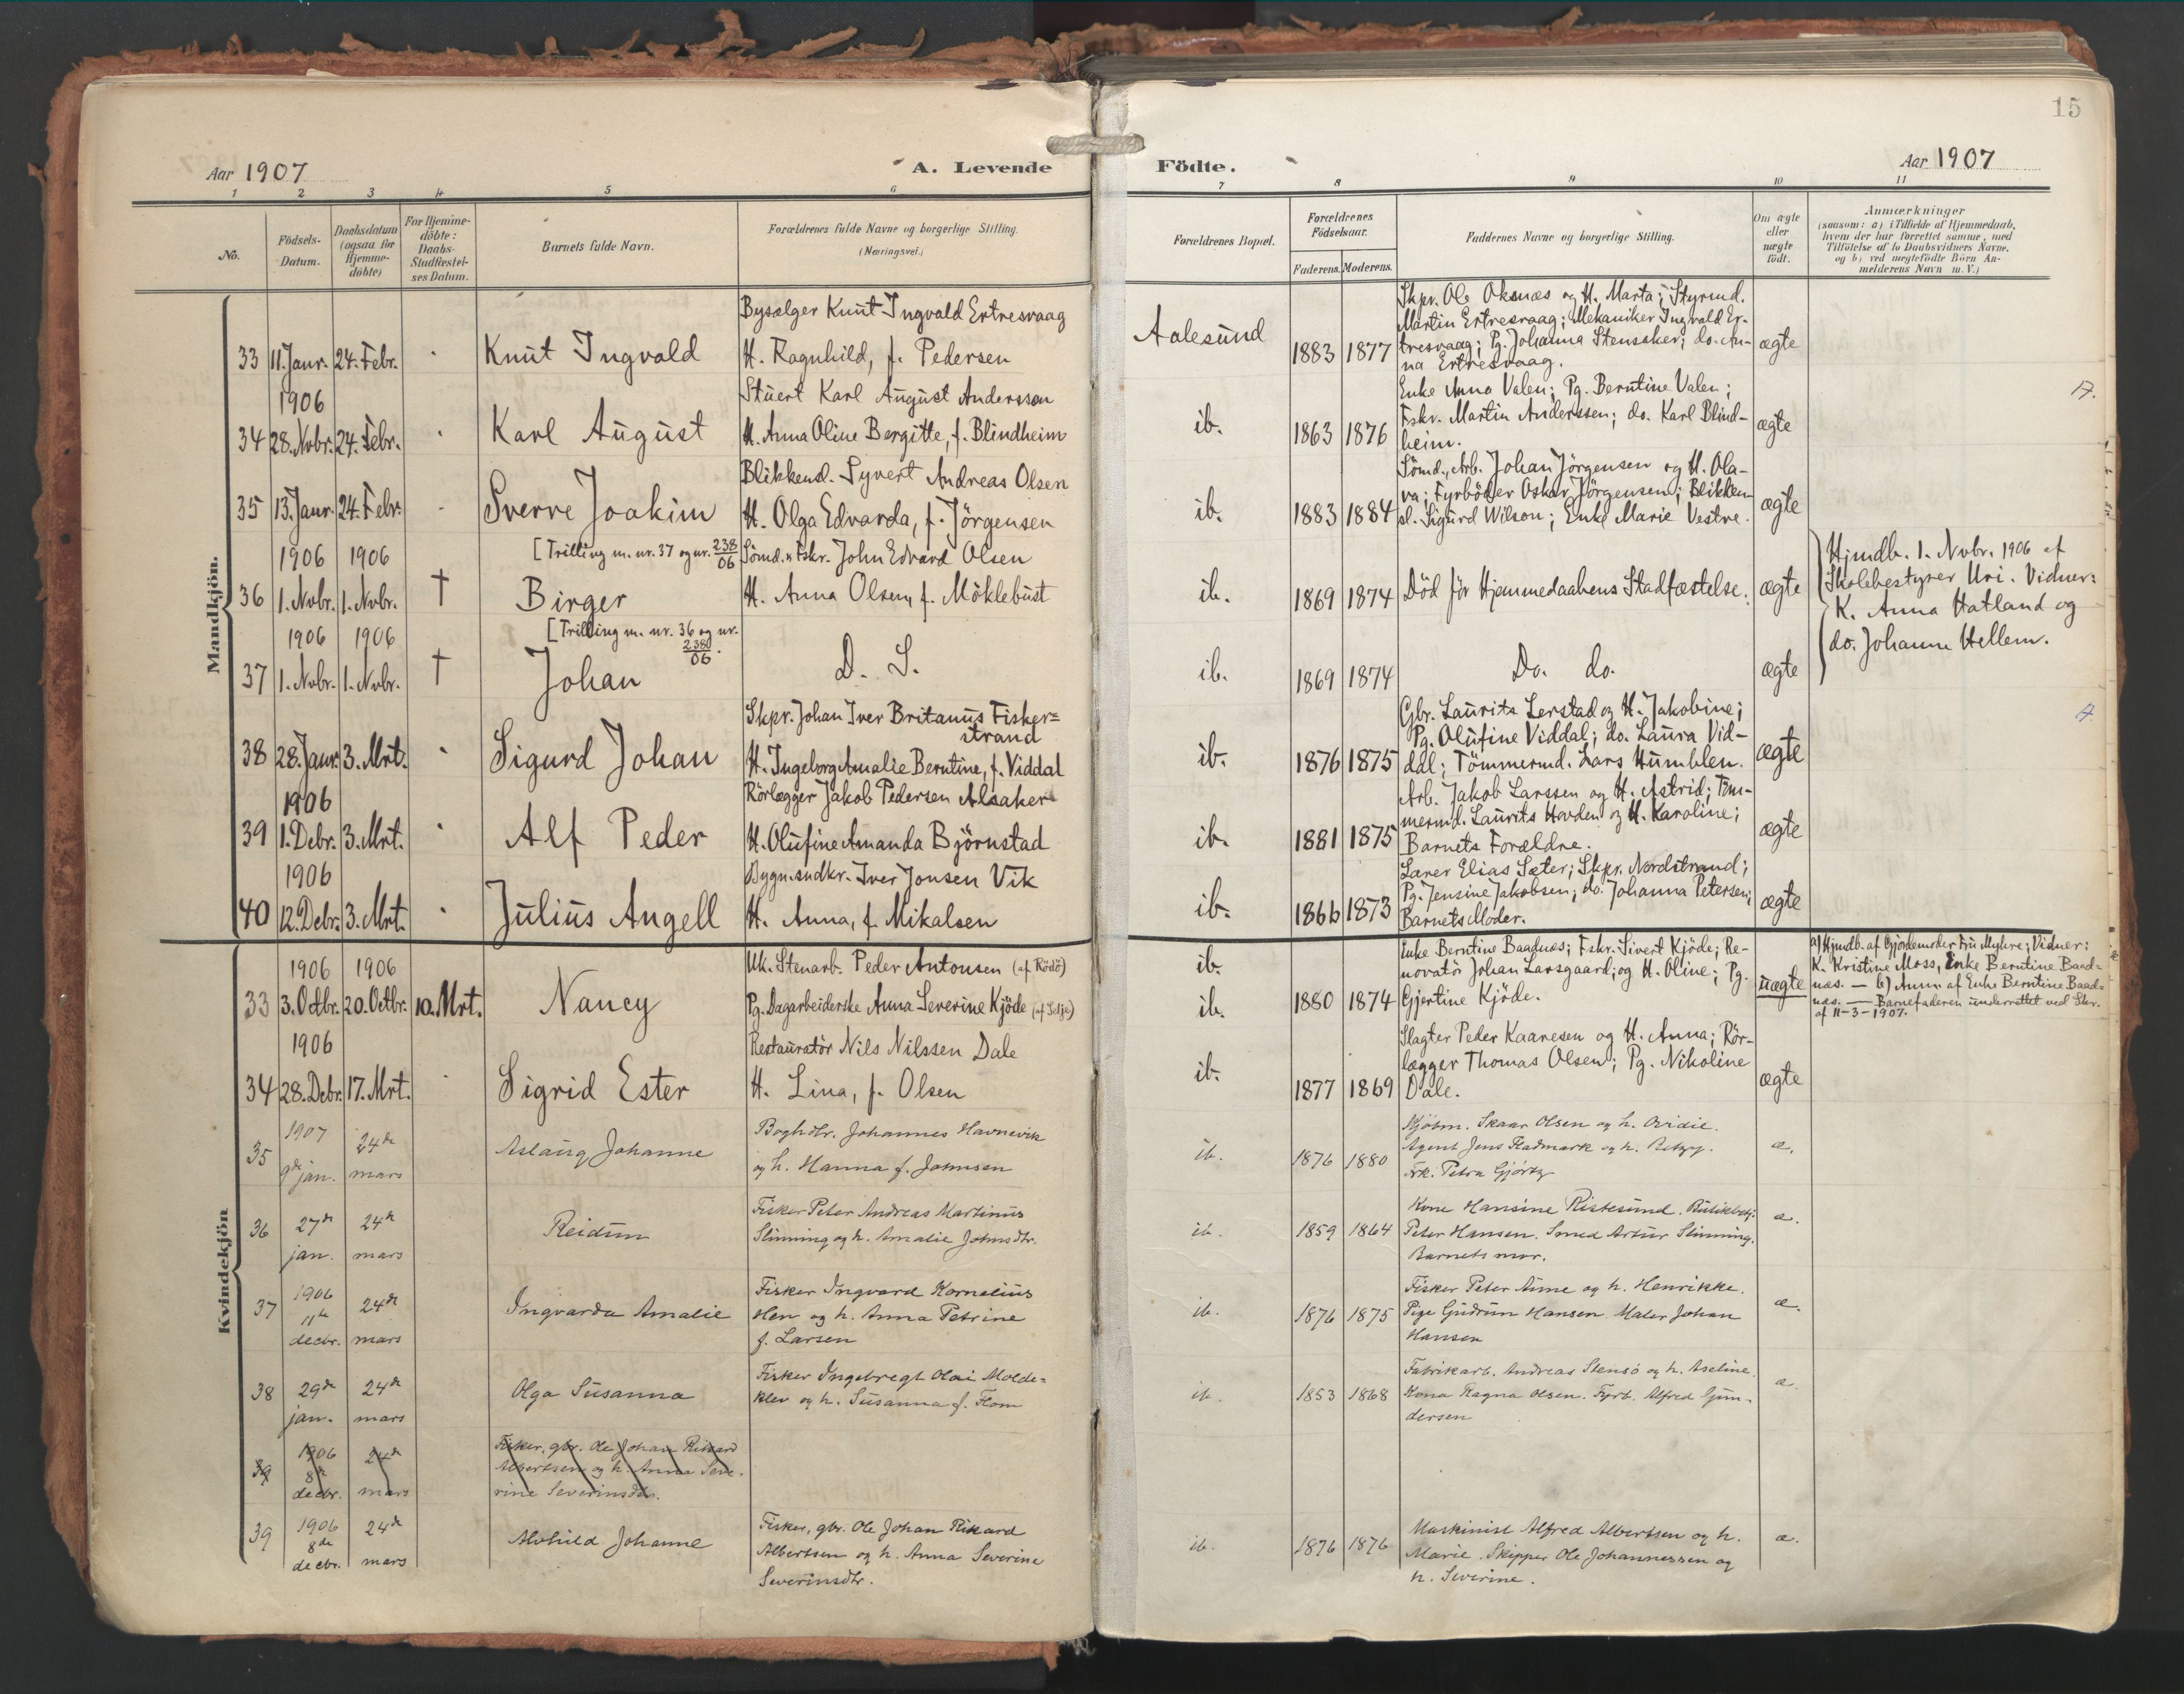 15
Aar 1907
A. Levende
Födte.
Aar 1907
1 2 3 4 5 6 7 8 9 10 11
No.
Födsels-
Datum.
Daabsdatum
(ogsaa for
Hjemme-
döbte)
For Hjemme-
döbte:
Daabs-
Stadfæstel-
ses Datum.
Barnets fulde Navn.
Forældrenes fulde Navne og borgerlige Stilling.
(Næringsvei.)
Forældrenes Bopæl.
Forældrenes
Födselsaar.
Faderens. Moderens.
Faddernes Navne og borgerlige Stilling.
Om ægte
eller
uægte
födt.
Anmærkninger
(saasom: a) i Tilfælde af Hjemmedaab,
hvem der har forrettet samme, med
Tilföielse af to Daabsvidners Navne,
og b) ved uegtefödte Börn An-
melderens Navn m. V.)
Mandkjön.
33 11. Janr. 24. Febr. Knut Ingvald
Bysælger Knut Ingvald Ertresvaag
H. Ragnhild, f. Pedersen
Aalesund
1883 1877
Skpr. Ole Oksnæs og H. Marta; Styrmd.
Martin Ertresvaag; Mekaniker Ingvald Er-
tresvaag; Pg. Johanna Stensaker; do. An-
na Ertresvaag.
ægte
1906
34 28. Nvbr. 24. Febr. Karl August
Stuert Karl August Anderssen
H. Anna Oline Bergitte, f. Blindheim
ib.
1863 1876
Enke Anna Valen; Pg. Berntine Valen;
Fskr. Martin Anderssen; do. Karl Blind-
heim.
ægte
35 13. Janr. 24. Febr. Sverre Joakim
Blikkensl. Syvert Andreas Olsen
H. Olga Edvarda, f. Jörgensen
ib.
1883 1884
Sömd., Arb. Johan Jörgensen og H. Ola-
va; Fyrböder Oskar Jörgensen; Blikken-
sl. Sigurd Wilson; Enke Marie Vestre.
ægte
1906 1906
36 1. Nvbr. 1. Nvbr. †
[Trilling m. nr. 37 og nr. 238/06
Birger
Sömd. & Fskr. John Edvard Olsen
H. Anna Olsen, f. Möklebust
ib.
1869 1874
Död för Hjemmedaabens Stadfæstelse.
ægte
Hjmdb. 1. Nvbr. 1906 af
Skolebestyrer Uri. Vidner:
K. Anna Hatland og
do. Johanne Hellem.
1906 1906
37 1. Nvbr. 1. Nvbr. †
[Trilling m. nr. 36 og nr.
238/06.
Johan
D. S.
ib.
1869 1874
Do. do.
ægte
38 28. Janr. 3. Mrt. Sigurd Johan
Skpr. Johan Iver Britanus Fisker=
strand
H. Ingeborg Amalie Berntine, f. Viddal
ib.
1876 1875
Gbr. Laurits Lerstad og H. Jakobine;
Pg. Olufine Viddal; do. Laura Vid-
dal; Tömmermd. Lars Humblen.
ægte
1906
39 1. Debr. 3. Mrt. Alf Peder
Rörlægger Jakob Pedersen Alsaker
H. Olufine Amanda Björnstad
ib.
1881 1875
Arb. Jakob Larssen og H. Astrid; Töm-
mermd. Laurits Hovden og H. Karoline;
Barnets Forældre.
ægte
1906
40 12. Debr. 3. Mrt. Julius Angell
Bygn.sndkr. Iver Jonsen Vik
H. Anna, f. Mikalsen
ib.
1866 1873
Lærer Elias Sæter; Skpr. Nordstrand;
Pg. Jensine Jakobsen; do. Johanna Petersen;
Barnets Moder.
ægte
Kvindekjön
1906 1906
33 3. Octbr. 20. Octbr. 10. Mrt. Nancy
Uk. Stenarb. Peder Antonsen (af Rödö)
Pg. Dagarbeiderske Anna Severine Kjöde (af Selje)
ib.
ib.
1880 1874
Enke Berntine Baadnæs; Fskr. Sivert Kjöde; Re-
novatör Johan Larsgaard; og H. Oline; Pg.
Gjertine Kjöde.
uægte
a) Hjmdb. af Gjordemoder Fru Myhre; Vidner:
K. Kristine Moss, Enke Berntine Baad=
næs. — b) Anm. af Enke Berntine Baad=
næs. — Barnefaderen underrettet ved Skr.
af 11-3-1907.
1906
34 28. Debr. 17. Mrt. Sigrid Ester
Restauratör Nils Nilssen Dale
H. Lina, f. Olsen
ib.
1877 1869
Slagter Peder Kaaresen og H. Anna; Rör-
lægger Thomas Olsen; Pg. Nikoline
Dale.
ægte
1907
35 9de jan. 24de mars Aslaug Johanne
Boghdlr. Johannes Havnevik
og h. Hanna f. Johnsen
ib.
1876 1880
Kjöbm. Skaar Olsen og h. Ovidie.
Agent Jens Fladmark og h.
Frk. Petra Gjörtz
æ.
36 27de jan. 24de mars Reidun
Fisker Peter Andreas Martinus
Slinning og h. Amalie Johnsdtr.
ib.
1859 1864
Kone Hansine Ristesund. Butikbetj.
Peter Hansen. Smed Artur Slinning.
Barnets mor.
æ.
1906
37 11te decbr. 24de mars Ingvarda Amalie
Fisker Ingvard Kornelius
Hen og h. Anna Petrine
f. Larsen
ib.
1876 1875
Fisker Peter Aune og h. Henrikke.
Pige Gudrun Hansen. Maler Johan
Hansen
æ.
38 29de jan. 24de mars Olga Susanna
Fisker Ingebregt Olai Molde=
klev og h. Susanna f. Flom
ib.
1853 1868
Fabrikarb. Andreas Stensö og h. Aseline.
Kona Ragna Olsen. Fyrb. Alfred Gun-
dersen
æ
39 1906 8de decbr. 24de mars
Fisker, gbr. Ole Johan Rikard
Albertsen og h. Anna Seve-
rine Severinsdtr.
39 1906 8de decbr. 24de mars Alvhild Johanne
Fisker, gbr. Ole Johan Rikard
Albertsen og h. Anna Severine
Severinsdtr.
ib.
1876 1876
Maskinist Alfred Albertsen og h.
Marie. Skipper Ole Johannessen og
h. Severine.
æ.